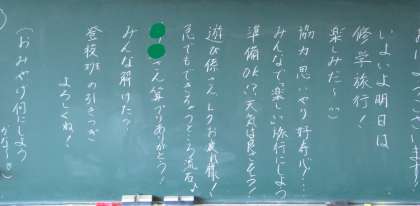 ます!
いよいよ明日は
修学旅行!
楽しみだ〜
協力 思いやり 好奇心!
みんなで楽しい旅行にしよう
準備OK!?天気は良さそう!
遊び係さんレクお疲れ様!
急でもできるってところ流石!
さん 算 ありがとう!
みんな解けた?
登校班の引きつぎ
よろしくね!
(おみやげ何にしよう
かな